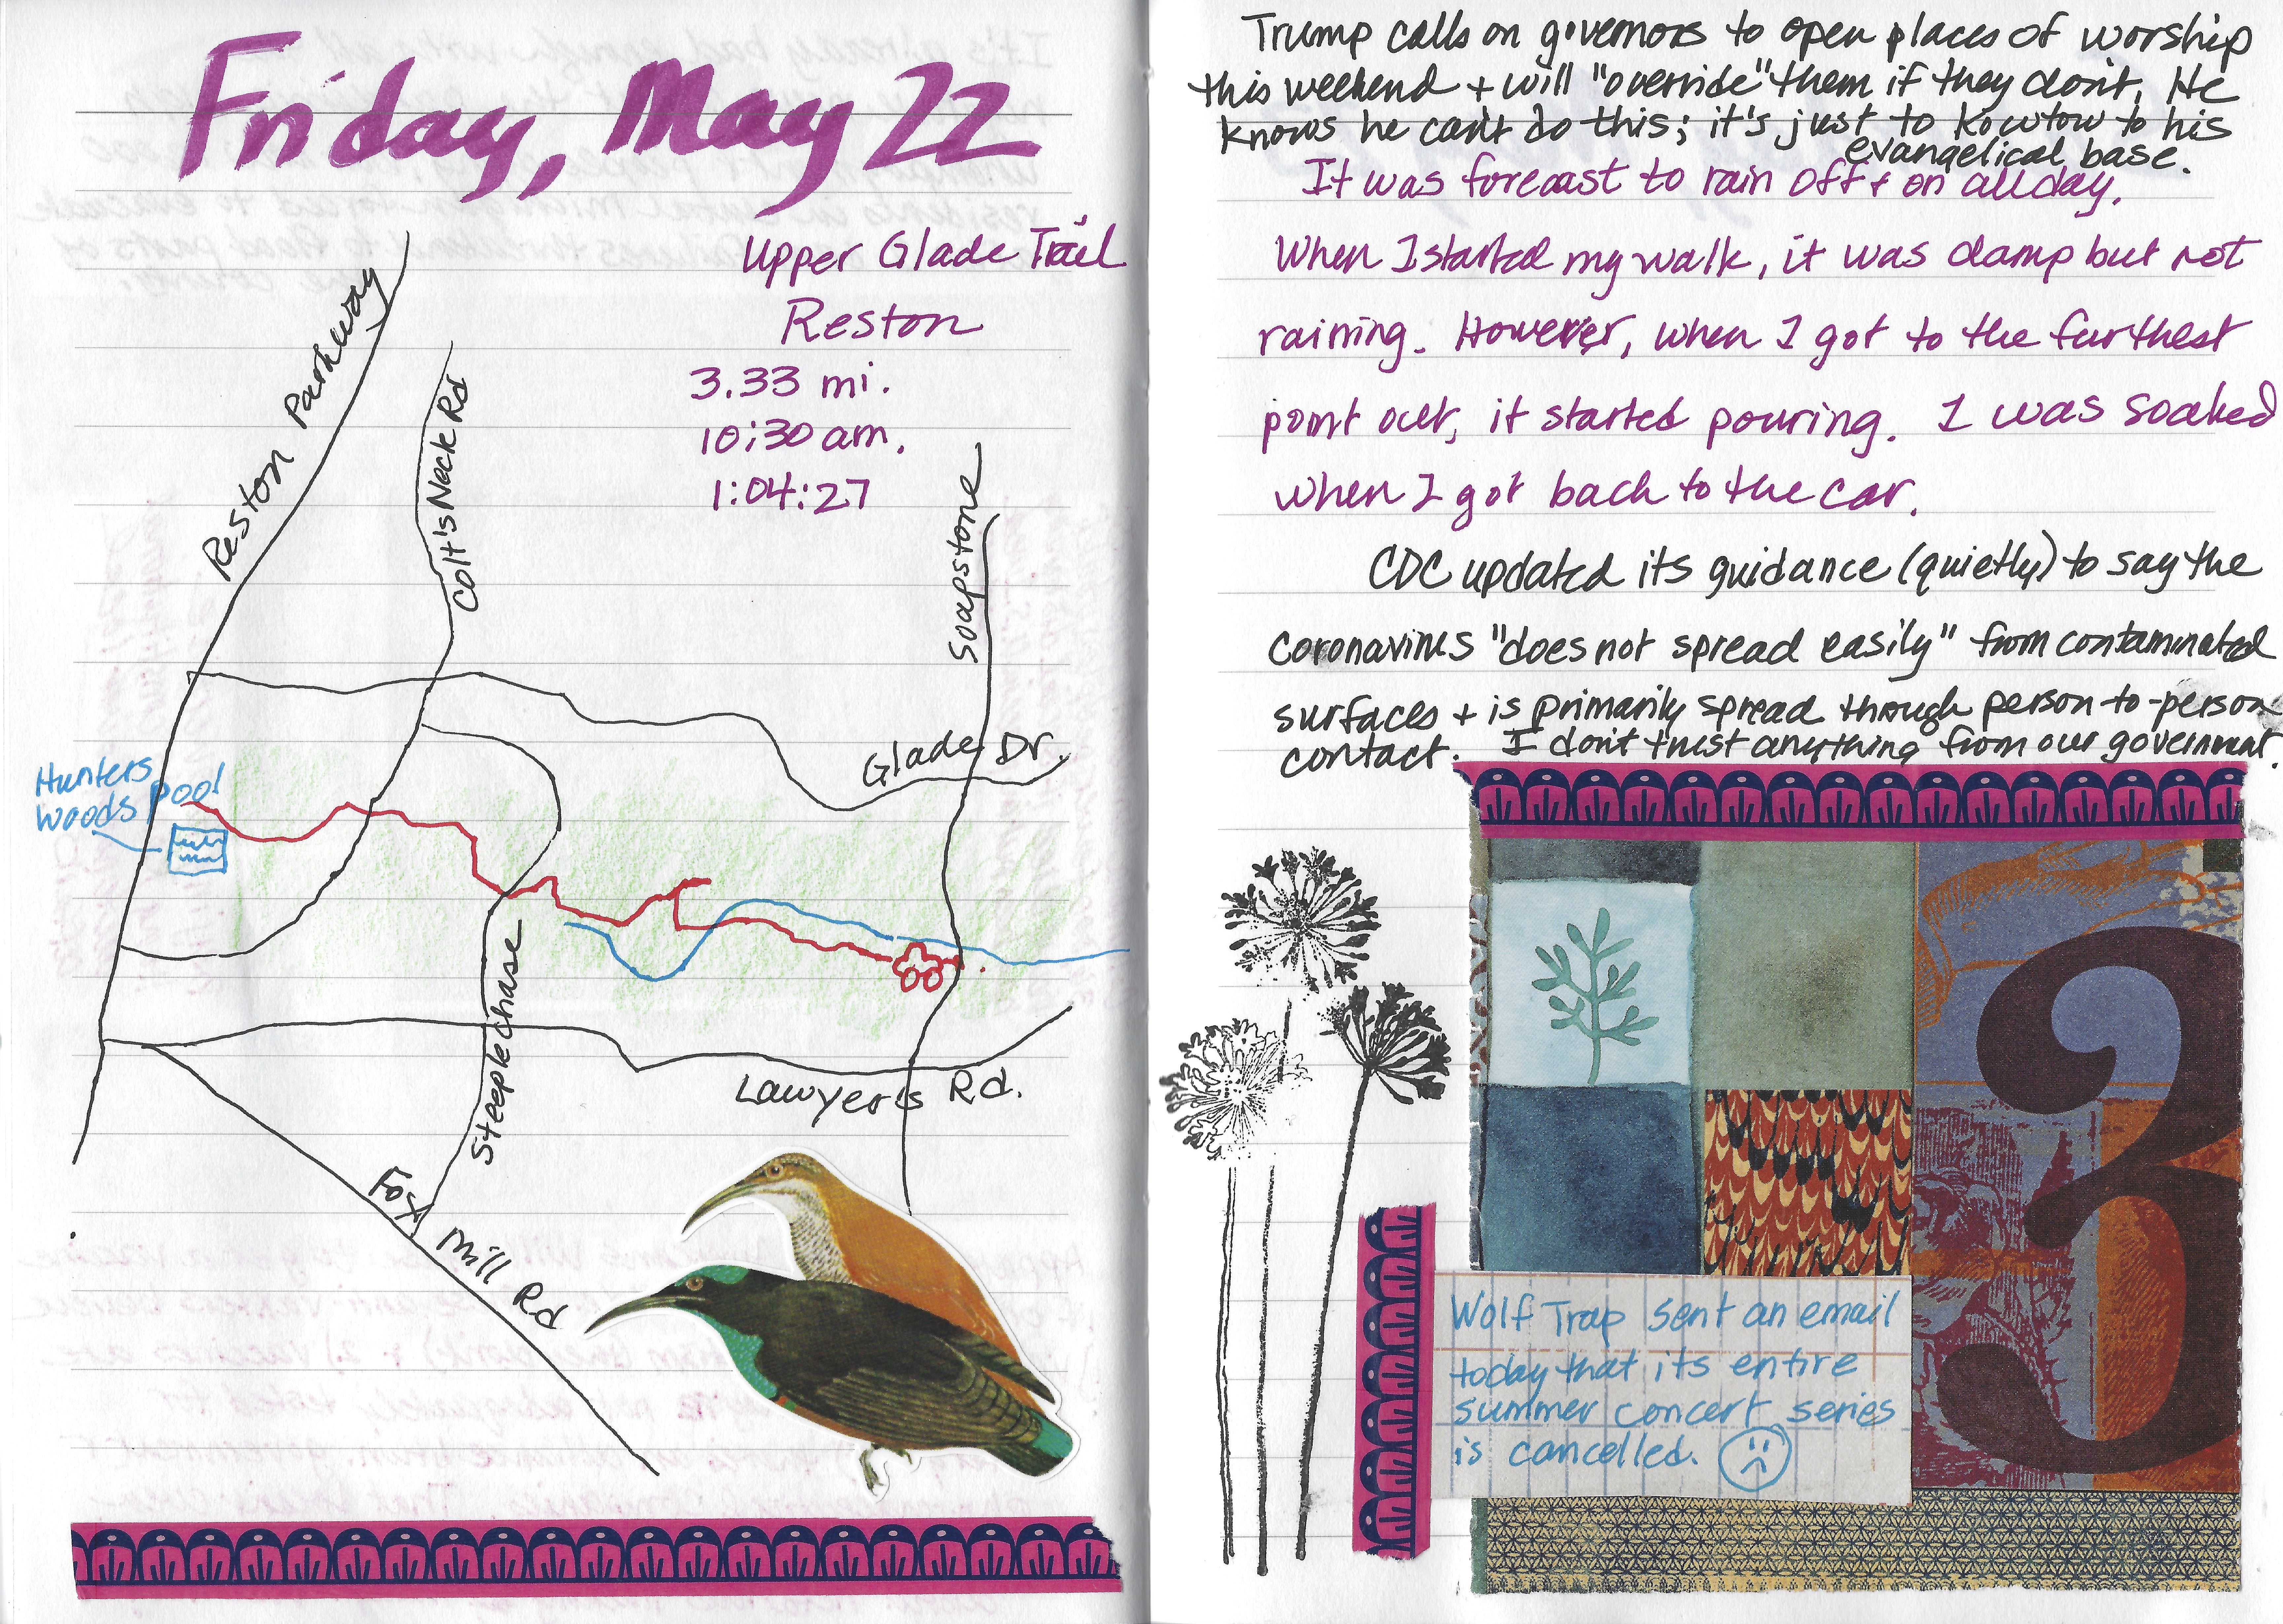 Friday, May 22
Upper Glade Trail
Reston
3.33 mi.
10:30 am.
1:04:27
Reston Parkway
Colt's Neck Rd
Soapstone
Glade Dr.
Hunters
Woods Pool
Steeplechase
Lawyer's Rd.
Fox Mill Rd
Trump calls on governors to open places of worship
this weekend + will "override" them if they don't. He
knows he can't do this; it's just to kowtow to his
evangelical base.
It was forecast to rain off + on all day.
When I started my walk, it was damp but not
raining. However, when I got to the furthest
point out, it started pouring. I was soaked
when I got back to the car.
CDC updated its guidance (quietly) to say the
coronavirus "does not spread easily" from contaminated
surfaces + is primarily spread through person-to-person
contact. I don't trust anything from our government.
3
Wolf Trap sent an email
today that its entire
summer concert series
is cancelled.